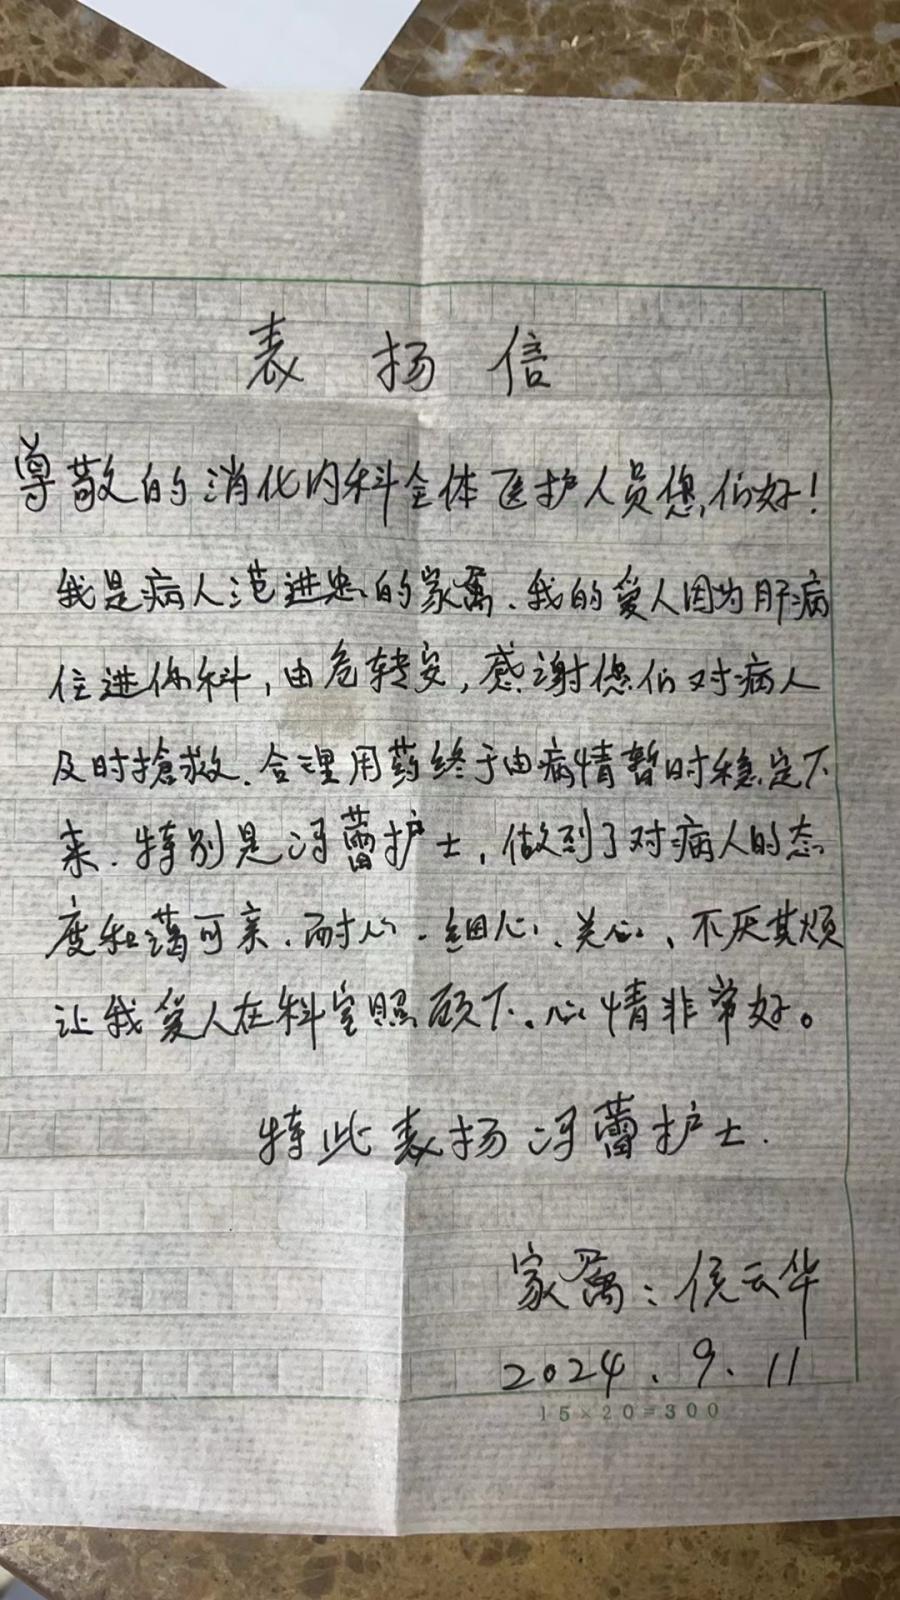 表扬信
尊敬的消化内科全体医护人员您们好!
我是病人范进忠的家属、我的爱人因为肝病
住进你科,由危转安,感谢您们对病人
及时抢救、合理用药终于由病情暂时稳定下
来、特别是冯蕾护士,做到了对病人的态
度和蔼可亲、耐心、细心、关心、不厌其烦
让我爱人在科室照顾下、心情非常好。
特此表扬冯蕾护士.
家属:侯云华
2024.9.11
15×20=300